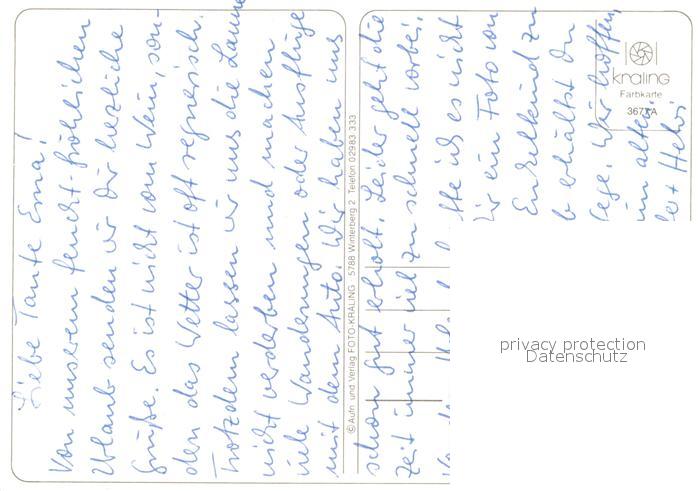 Liebe Tante Erna!
Von unserem feucht-fröhlichen
Urlaub senden wir Dir herzliche
Grüße. Es ist nicht vom Wein, son-
dern das Wetter ist oft regnerisch.
Trotzdem lassen wir uns die Laune
nicht verderben und machen
viele Wanderungen oder Ausflüge
mit dem Auto. Wir haben uns
schon gut erholt. Leider geht die
Zeit immer viel zu schnell vorbei.
ich es nicht
ein Foto von
Enkelkind zu
erhältst Du
Wir hoffen,
im alten
© Aufn. und Verlag FOTO-KRALING 5788 Winterberg 2 Telefon 02983 333
kraling
Farbkarte
privacy protection
Datenschutz